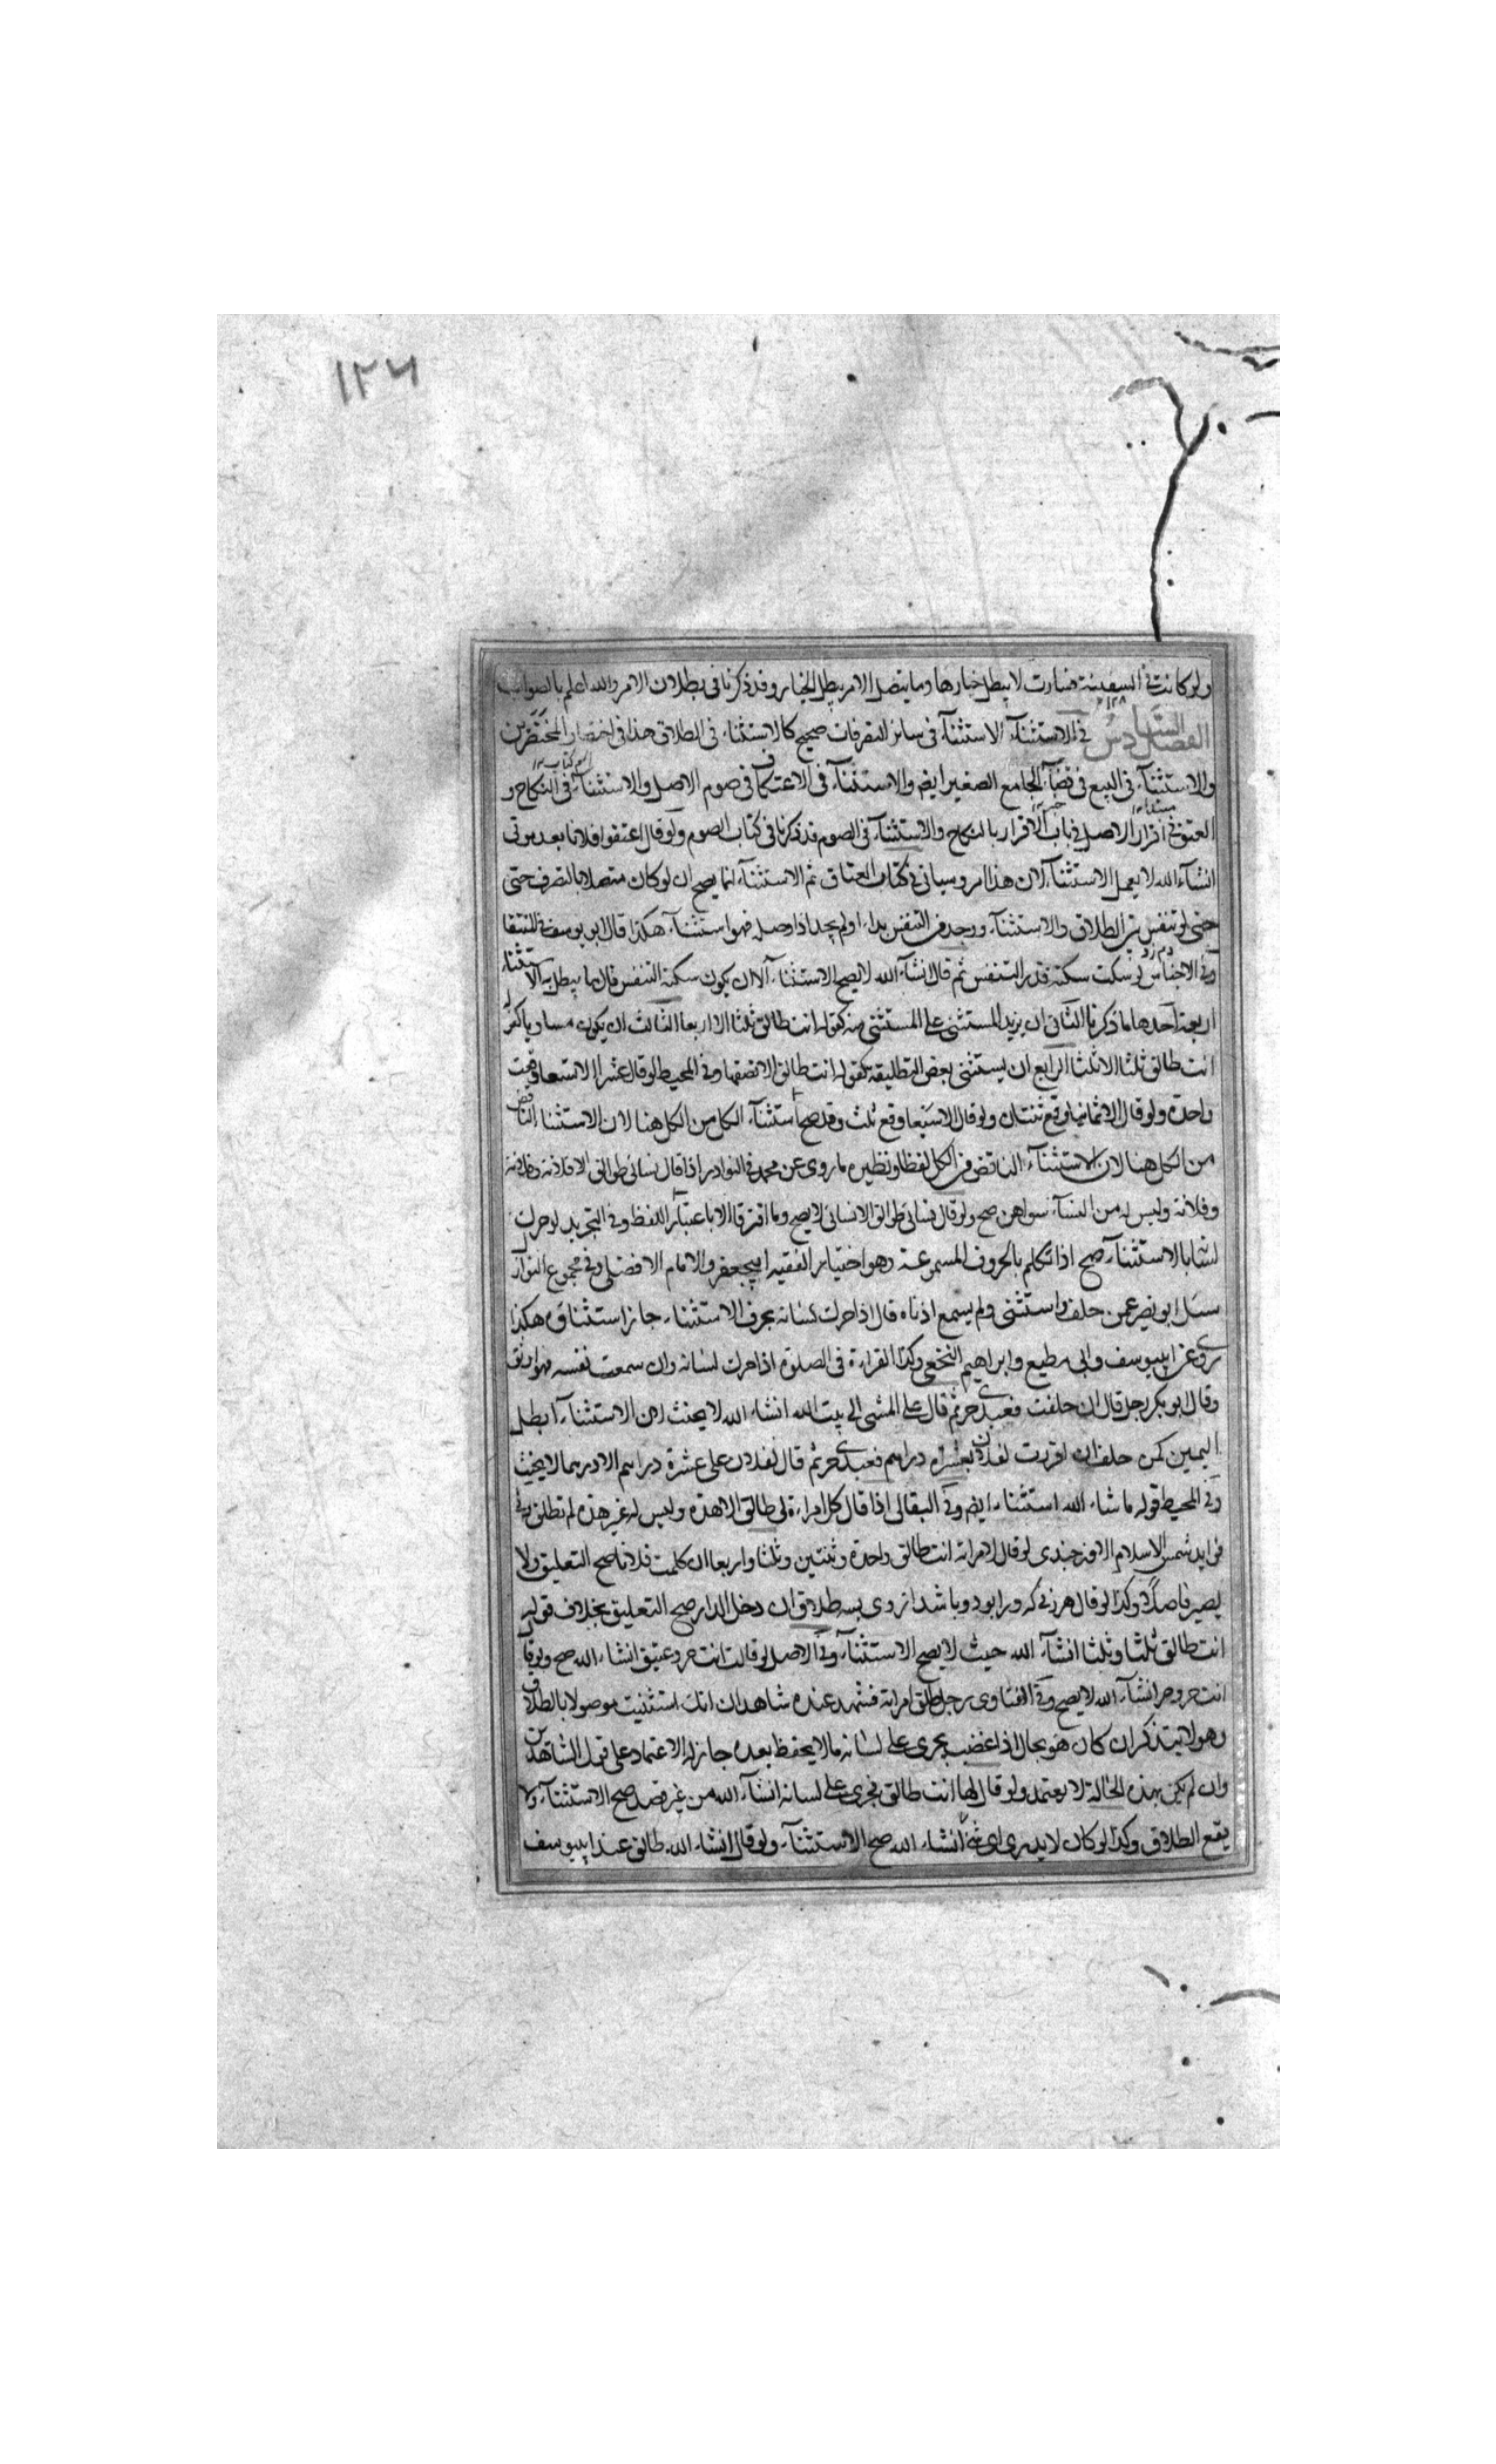 ١٢٦
ولو كانت في السفينة فسارت لا يبطل خيارها وما يتصل الامر يبطل الخيار وقد ذكرنا في بطلان الامر والله اعلم بالصواب
الفصل السادس في الاستثناء الاستثناء في سائر التصرفات صحيح كالاستثناء في الطلاق هذا في اختصار المختصرين
والاستثناء في البيع في قضاء الجامع الصغير ايضا والاستثناء في الاعتكاف في صوم الاصل والاستثناء في النكاح و
العتق في اقرار الاصل في باب الاقرار بالنكاح والاستثناء في الصوم قد ذكرنا في كتاب الصوم ولو قال اعتقوا فلانا بعد موتي
انشاء الله لا يعمل الاستثناء لان هذا امر وسياتي في كتاب العتاق ثم الاستثناء انما يصح ان لو كان متصلا بالتصرف حتى
حتى لو تنفس بين الطلاق والاستثناء ووجد من التنفس بدا او لم يجد اذا وصله فهو استثناء هكذا قال ابو يوسف في المنتقا
وفي الاجناس لو سكت سكتة قدر التنفس ثم قال انشاء الله لا يصح الاستثناء الا ان يكون سكتة التنفس قال ما يبطل به الاستثناء
اربعة احدها ما ذكرنا الثاني ان يزيد المستثنى على المستثنى منه كقوله انت طالق ثلثا الا اربعا الثالث ان يكون مساويا كقوله
انت طالق ثلثا الا ثلثا الرابع ان يستثنى بعض التطليقه كقوله انت طالق الا نصفها وفي المحيط لو قال عشرا الا تسعا وقعت
واحدة ولو قال الا ثمانيا وقع ثنتان ولو قال الا سبعا وقع ثلث وقد صح استثناء الكل من الكل هنا لان الاستثنا الناقض
من الكل هنا لان الاستثناء الناقض من الكل لفظا ونظيره ما روى عن محمد في النوادر اذا قال نسائي طوالق الا فلانة وفلانة
وفلانة وليس له من النساء سواهن صح ولو قال نسائي طوالق الا نسائي لا يصح وما افترقا الا باعتبار اللفظ وفي التجريد لو حرك
لسانا بالاستثناء صح اذا تكلم بالحروف المسموعة وهو اختيار الفقيه ابيجعفر والامام الافضلي وفي مجموع النوازل
سئل ابو نصر عمن حلف واستثنى ولم يسمع اذناه قال اذا حرك لسانه بحرف الاستثناء جاز استثناؤه هكذا
روي عن ابييوسف وابي مطيع وابراهيم النخعي وكذا القراءة في الصلوة اذا حرك لسانه وان سمعت نفسه فهو اوثق
وقال ابو بكر رجل قال ان حلفت فعبدي حر ثم قال على المشي الى بيت الله انشاء الله لا يحنث لان الاستثناء ابطل
اليمين كمن حلف ان اقررت لفلان بعشرة دراهم فعبدي حر ثم قال لفلان على عشرة دراهم الا درهما لا يحنث
وفي المحيط قوله ما شاء الله استثناء ايضا وفي البقالي اذا قال كل امراءة لي طالق الا هذه وليس له غير هذه لم تطلق وفي
فوايد شمس الاسلام الاوزجندي لو قال لامراته انت طالق واحدة وثنتين وثلثا واربعا ان كلمت فلانا صح التعليق ولا
يصير فاصلا وكذا لو قال هر زنى كه ورا بود وباشد از وى بسه طلاق ان دخل الدار صح التعليق بخلاف قوله
انت طالق ثلثا وثلثا انشاء الله حيث لا يصح الاستثناء وفي الاصل لو قالت انت حر وعتيق انشاء الله صح ولو قال
انت حر وحر انشاء الله لا يصح وفي الفتاوى رجل طلق امراته فشهد عنده شاهدان انك استثنيت موصولا بالطلاق
وهو لا يتذكر ان كان هو بحال اذا غضب يجري على لسانه ما لا يحفظ بعده جاز له الاعتماد على قول الشاهدين
وان لم يكن بهذه الحالة لا يعتمد ولو قال لها انت طالق فجرى على لسانه انشاء الله من غير قصد صح الاستثناء ولا
يقع الطلاق وكذا لو كان لا يدري اي شيء انشاء الله صح الاستثناء ولو قال انشاء الله طالق عند ابييوسف